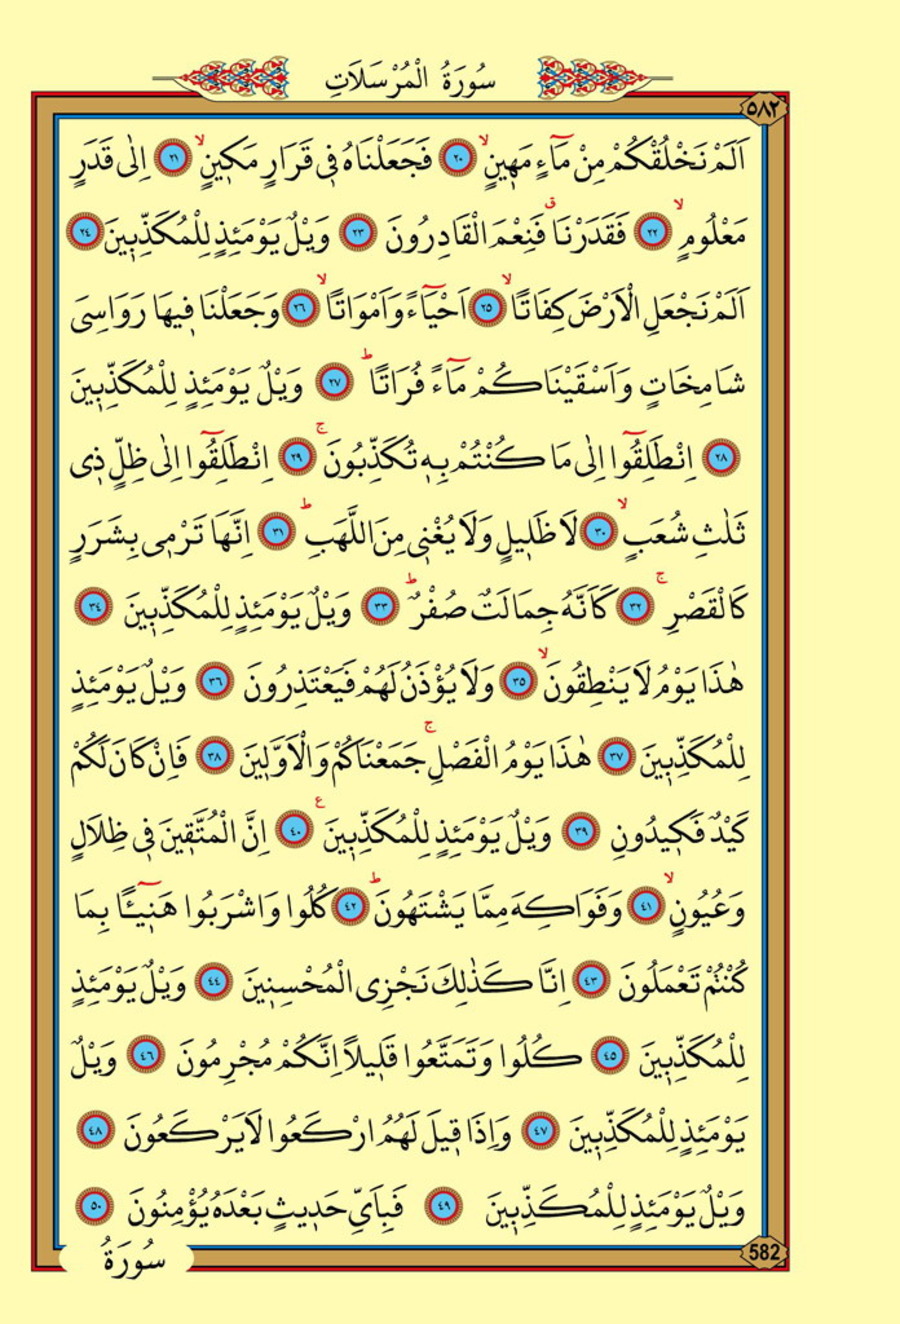 سُورَةُ الْمُرْسَلَاتِ
٥٨٢
اَلَمْ نَخْلُقْكُمْ مِنْ مَٓاءٍ مَه۪ينٍۙ ﴿٢٠﴾ فَجَعَلْنَاهُ ف۪ي قَرَارٍ مَك۪ينٍۙ ﴿٢١﴾ اِلٰى قَدَرٍ
مَعْلُومٍۙ ﴿٢٢﴾ فَقَدَرْنَاۗ فَنِعْمَ الْقَادِرُونَ ﴿٢٣﴾ وَيْلٌ يَوْمَئِذٍ لِلْمُكَذِّب۪ينَ ﴿٢٤﴾
اَلَمْ نَجْعَلِ الْاَرْضَ كِفَاتًاۙ ﴿٢٥﴾ اَحْيَٓاءً وَاَمْوَاتًاۙ ﴿٢٦﴾ وَجَعَلْنَا ف۪يهَا رَوَاسِىَ
شَامِخَاتٍ وَاَسْقَيْنَاكُمْ مَٓاءً فُرَاتًاۜ ﴿٢٧﴾ وَيْلٌ يَوْمَئِذٍ لِلْمُكَذِّب۪ينَ
﴿٢٨﴾ اِنْطَلِقُٓوا اِلٰى مَا كُنْتُمْ بِه۪ تُكَذِّبُونَۚ ﴿٢٩﴾ اِنْطَلِقُٓوا اِلٰى ظِلٍّ ذ۪ى
ثَلٰثِ شُعَبٍۙ ﴿٣٠﴾ لَا ظَل۪يلٍ وَلَا يُغْن۪ى مِنَ اللَّهَبِۜ ﴿٣١﴾ اِنَّهَا تَرْم۪ى بِشَرَرٍ
كَالْقَصْرِۚ ﴿٣٢﴾ كَاَنَّهُ جِمَالَتٌ صُفْرٌۜ ﴿٣٣﴾ وَيْلٌ يَوْمَئِذٍ لِلْمُكَذِّب۪ينَ ﴿٣٤﴾
هٰذَا يَوْمُ لَا يَنْطِقُونَۙ ﴿٣٥﴾ وَلَا يُؤْذَنُ لَهُمْ فَيَعْتَذِرُونَ ﴿٣٦﴾ وَيْلٌ يَوْمَئِذٍ
لِلْمُكَذِّب۪ينَ ﴿٣٧﴾ هٰذَا يَوْمُ الْفَصْلِۚ جَمَعْنَاكُمْ وَالْاَوَّل۪ينَ ﴿٣٨﴾ فَاِنْ كَانَ لَكُمْ
كَيْدٌ فَك۪يدُونِ ﴿٣٩﴾ وَيْلٌ يَوْمَئِذٍ لِلْمُكَذِّب۪ينَ ع ﴿٤٠﴾ اِنَّ الْمُتَّق۪ينَ ف۪ى ظِلَالٍ
وَعُيُونٍۙ ﴿٤١﴾ وَفَوَاكِهَ مِمَّا يَشْتَهُونَۜ ﴿٤٢﴾ كُلُوا وَاشْرَبُوا هَن۪ٓيـًٔا بِمَا
كُنْتُمْ تَعْمَلُونَ ﴿٤٣﴾ اِنَّا كَذٰلِكَ نَجْزِى الْمُحْسِن۪ينَ ﴿٤٤﴾ وَيْلٌ يَوْمَئِذٍ
لِلْمُكَذِّب۪ينَ ﴿٤٥﴾ كُلُوا وَتَمَتَّعُوا قَل۪يلًا اِنَّكُمْ مُجْرِمُونَ ﴿٤٦﴾ وَيْلٌ
يَوْمَئِذٍ لِلْمُكَذِّب۪ينَ ﴿٤٧﴾ وَاِذَا ق۪يلَ لَهُمُ ارْكَعُوا لَا يَرْكَعُونَ ﴿٤٨﴾
وَيْلٌ يَوْمَئِذٍ لِلْمُكَذِّب۪ينَ ﴿٤٩﴾ فَبِاَىِّ حَد۪يثٍ بَعْدَهُ يُؤْمِنُونَ ﴿٥٠﴾
582
سُورَةُ